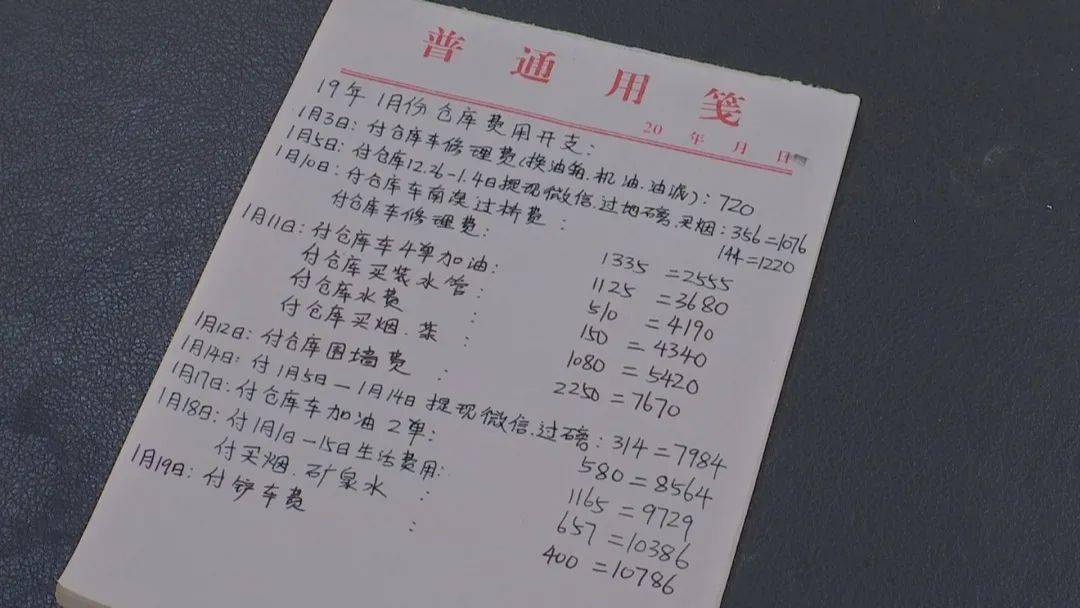 普通用笺
20 年 月 日
19年1月份仓库费用开支:
1月3日:付仓库车修理费(换油箱.机油.油泥):720
1月5日:付仓库12.26-1.4日提现微信.过地磅.买烟:356=1076
1月10日:付仓库车南澳过桥费: 144=1220
付仓库车修理费: 1335=2555
1月11日:付仓库车4单加油: 1125=3680
付仓库买装水管: 510=4190
付仓库水费: 150=4340
付仓库买烟.茶: 1080=5420
1月12日:付仓库围墙费: 2250=7670
1月14日:付1月5日-1月14日提现微信.过磅:314=7984
1月17日:付仓库车加油2单: 580=8564
1月18日:付1月1日-15日生活费用: 1165=9729
付买烟.矿泉水: 657=10386
1月19日:付铲车费: 400=10786